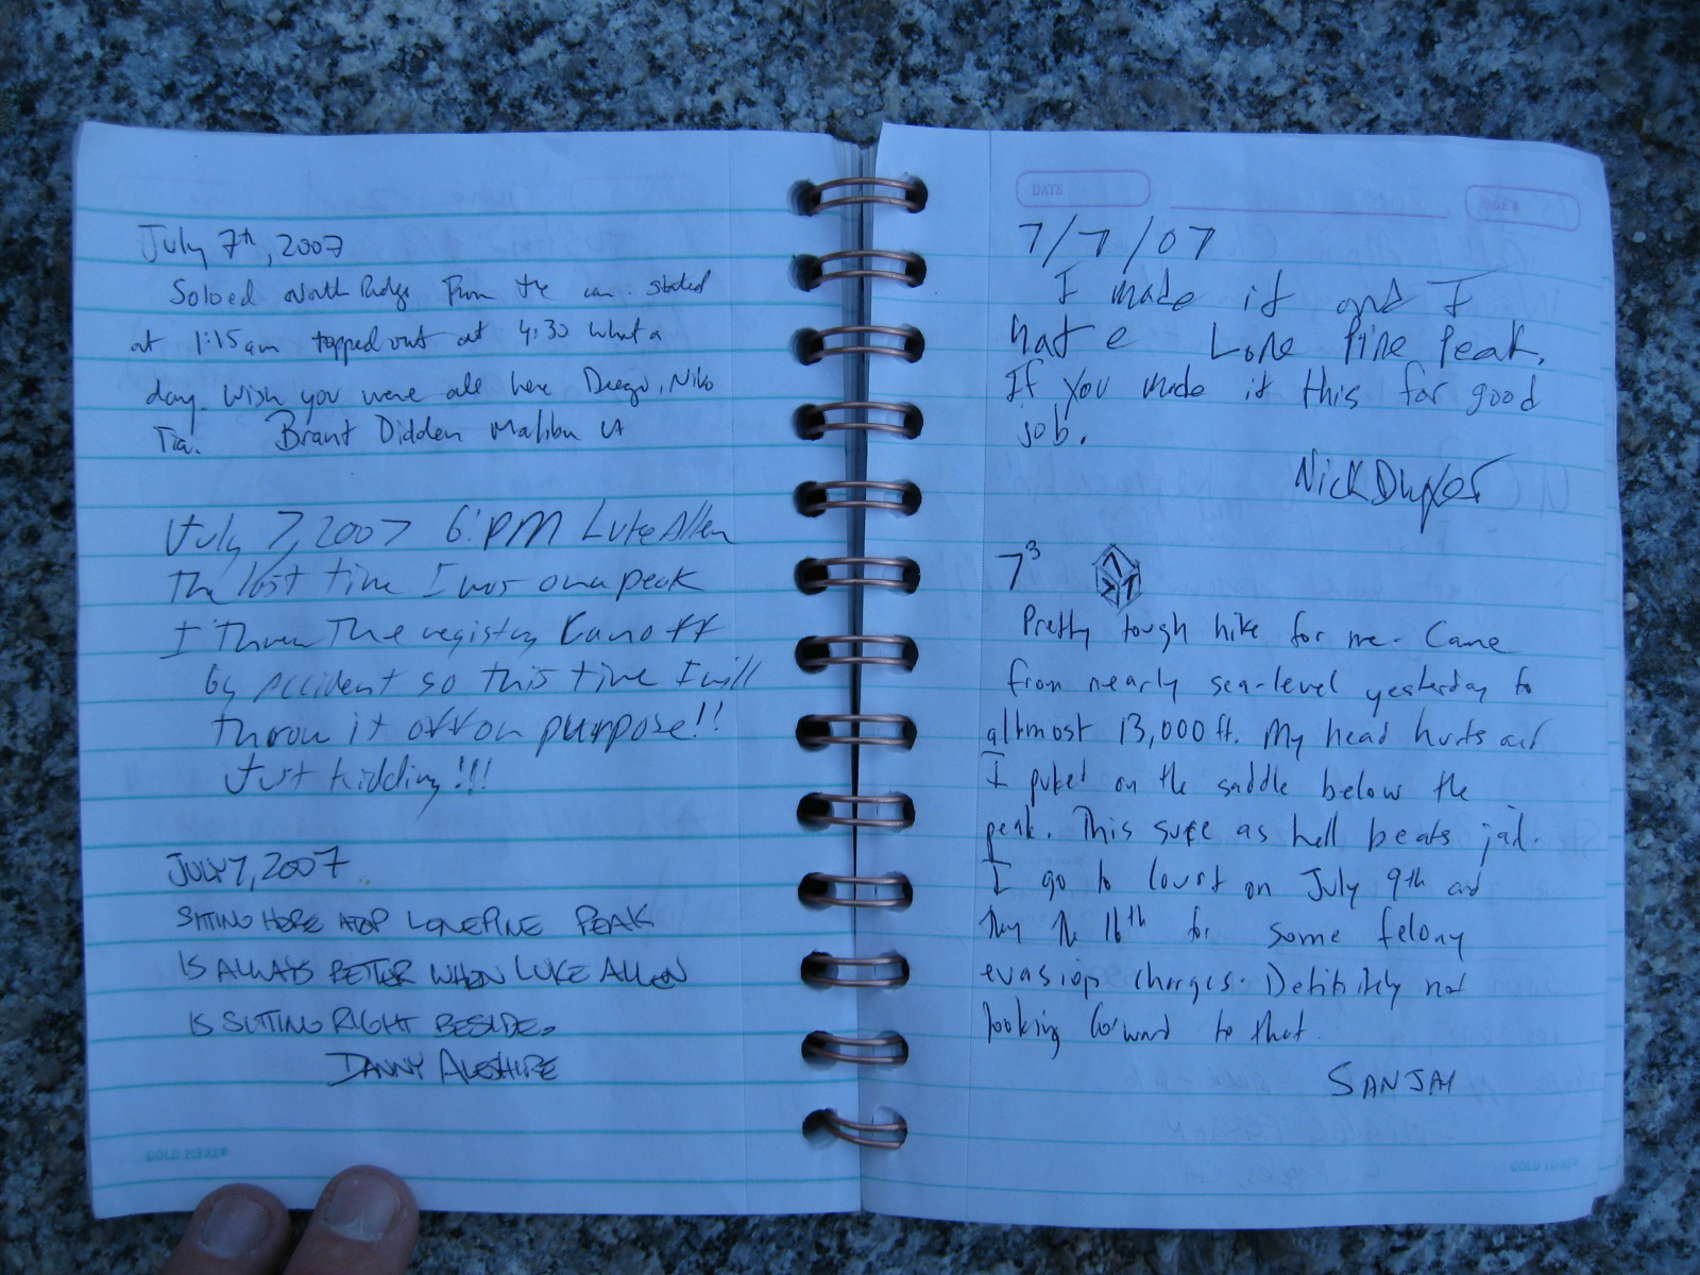 July 7th, 2007
Soloed North Ridge From the car. started
at 1:15am topped out at 4:30 what a
day. Wish you were all here Diego, Niko
Tia. Brant Didden Malibu CA
July 7, 2007 6:PM Luke Allen
The last time I was on a peak
I threw The registry Can off
by accident so this time I will
throw it off on purpose!!
Just kidding!!!
JULY 7, 2007
SITTING HERE ATOP LONE PINE PEAK
IS ALWAYS BETTER WHEN LUKE ALLEN
IS SITTING RIGHT BESIDE.
DANNY ALESHIRE
GOLD FIBRE®
DATE
7/7/07
I made it and I
hate Lone Pine Peak.
If you made it this far good
job.
Nick
7³
7
Pretty tough hike for me. Came
from nearly sea-level yesterday to
altmost 13,000 ft. My head hurts and
I puked on the saddle below the
peak. This sure as hell beats jail.
I go to court on July 9th and
then the 16th for some felony
evasion charges. Definitely not
looking forward to that.
SANJAY
GOLD FIBRE®